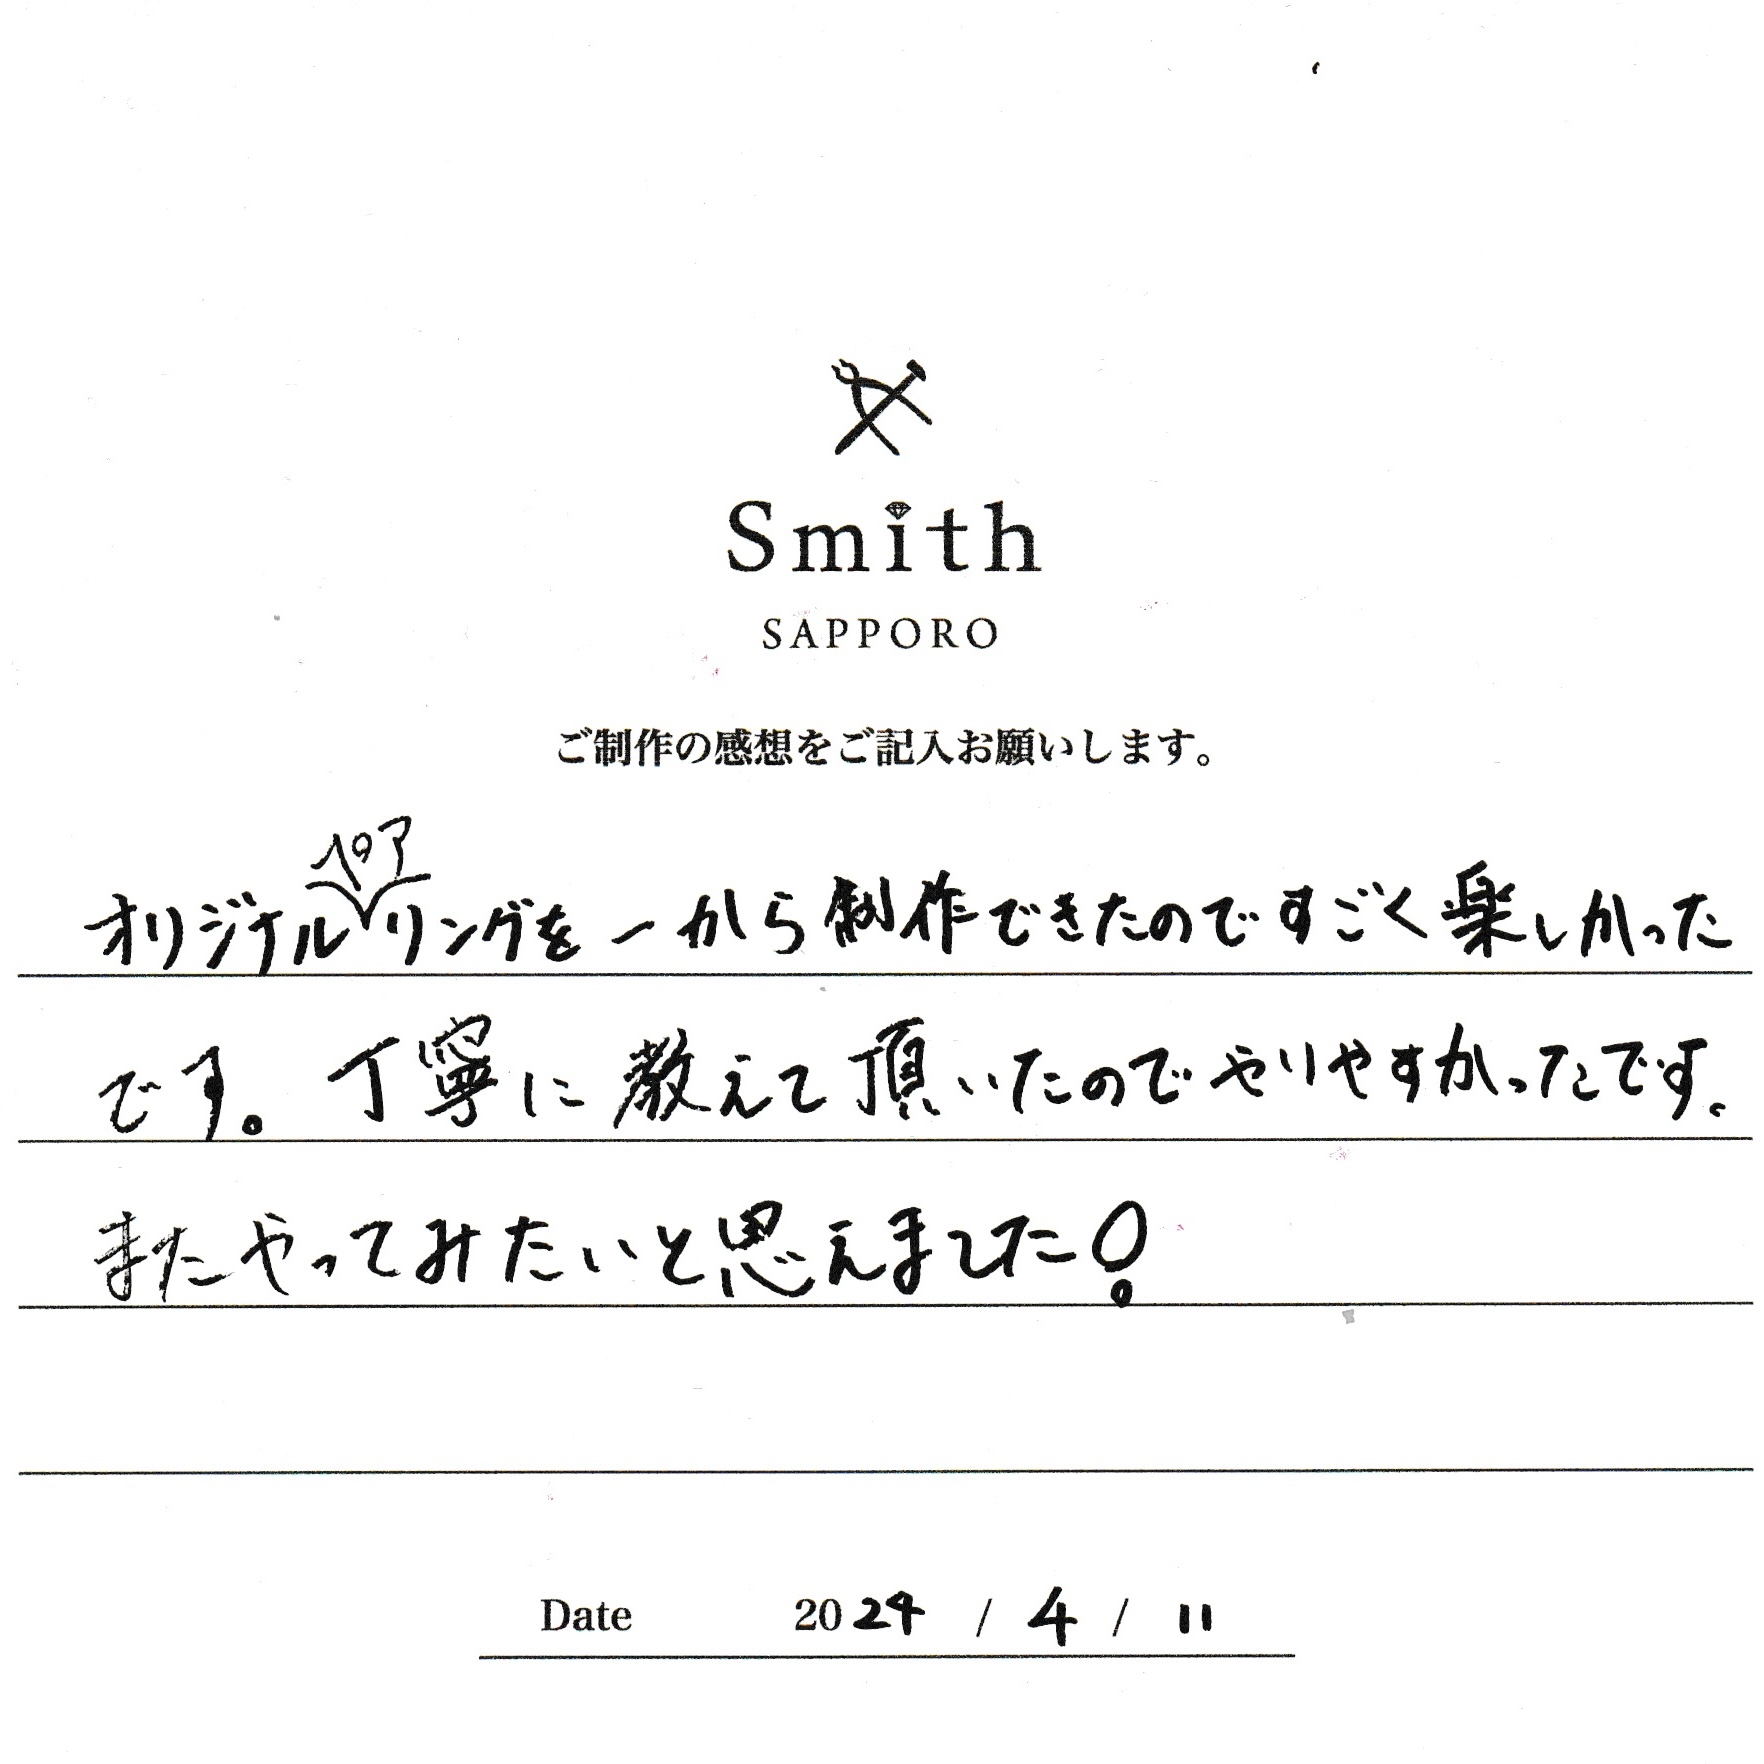 Smith
SAPPORO
ご制作の感想をご記入お願いします。
ペア
オリジナルリングを一から制作できたのですごく楽しかった
です。丁寧に教えて頂いたのでやりやすかったです。
またやってみたいと思えました!
Date 2024 / 4 / 11